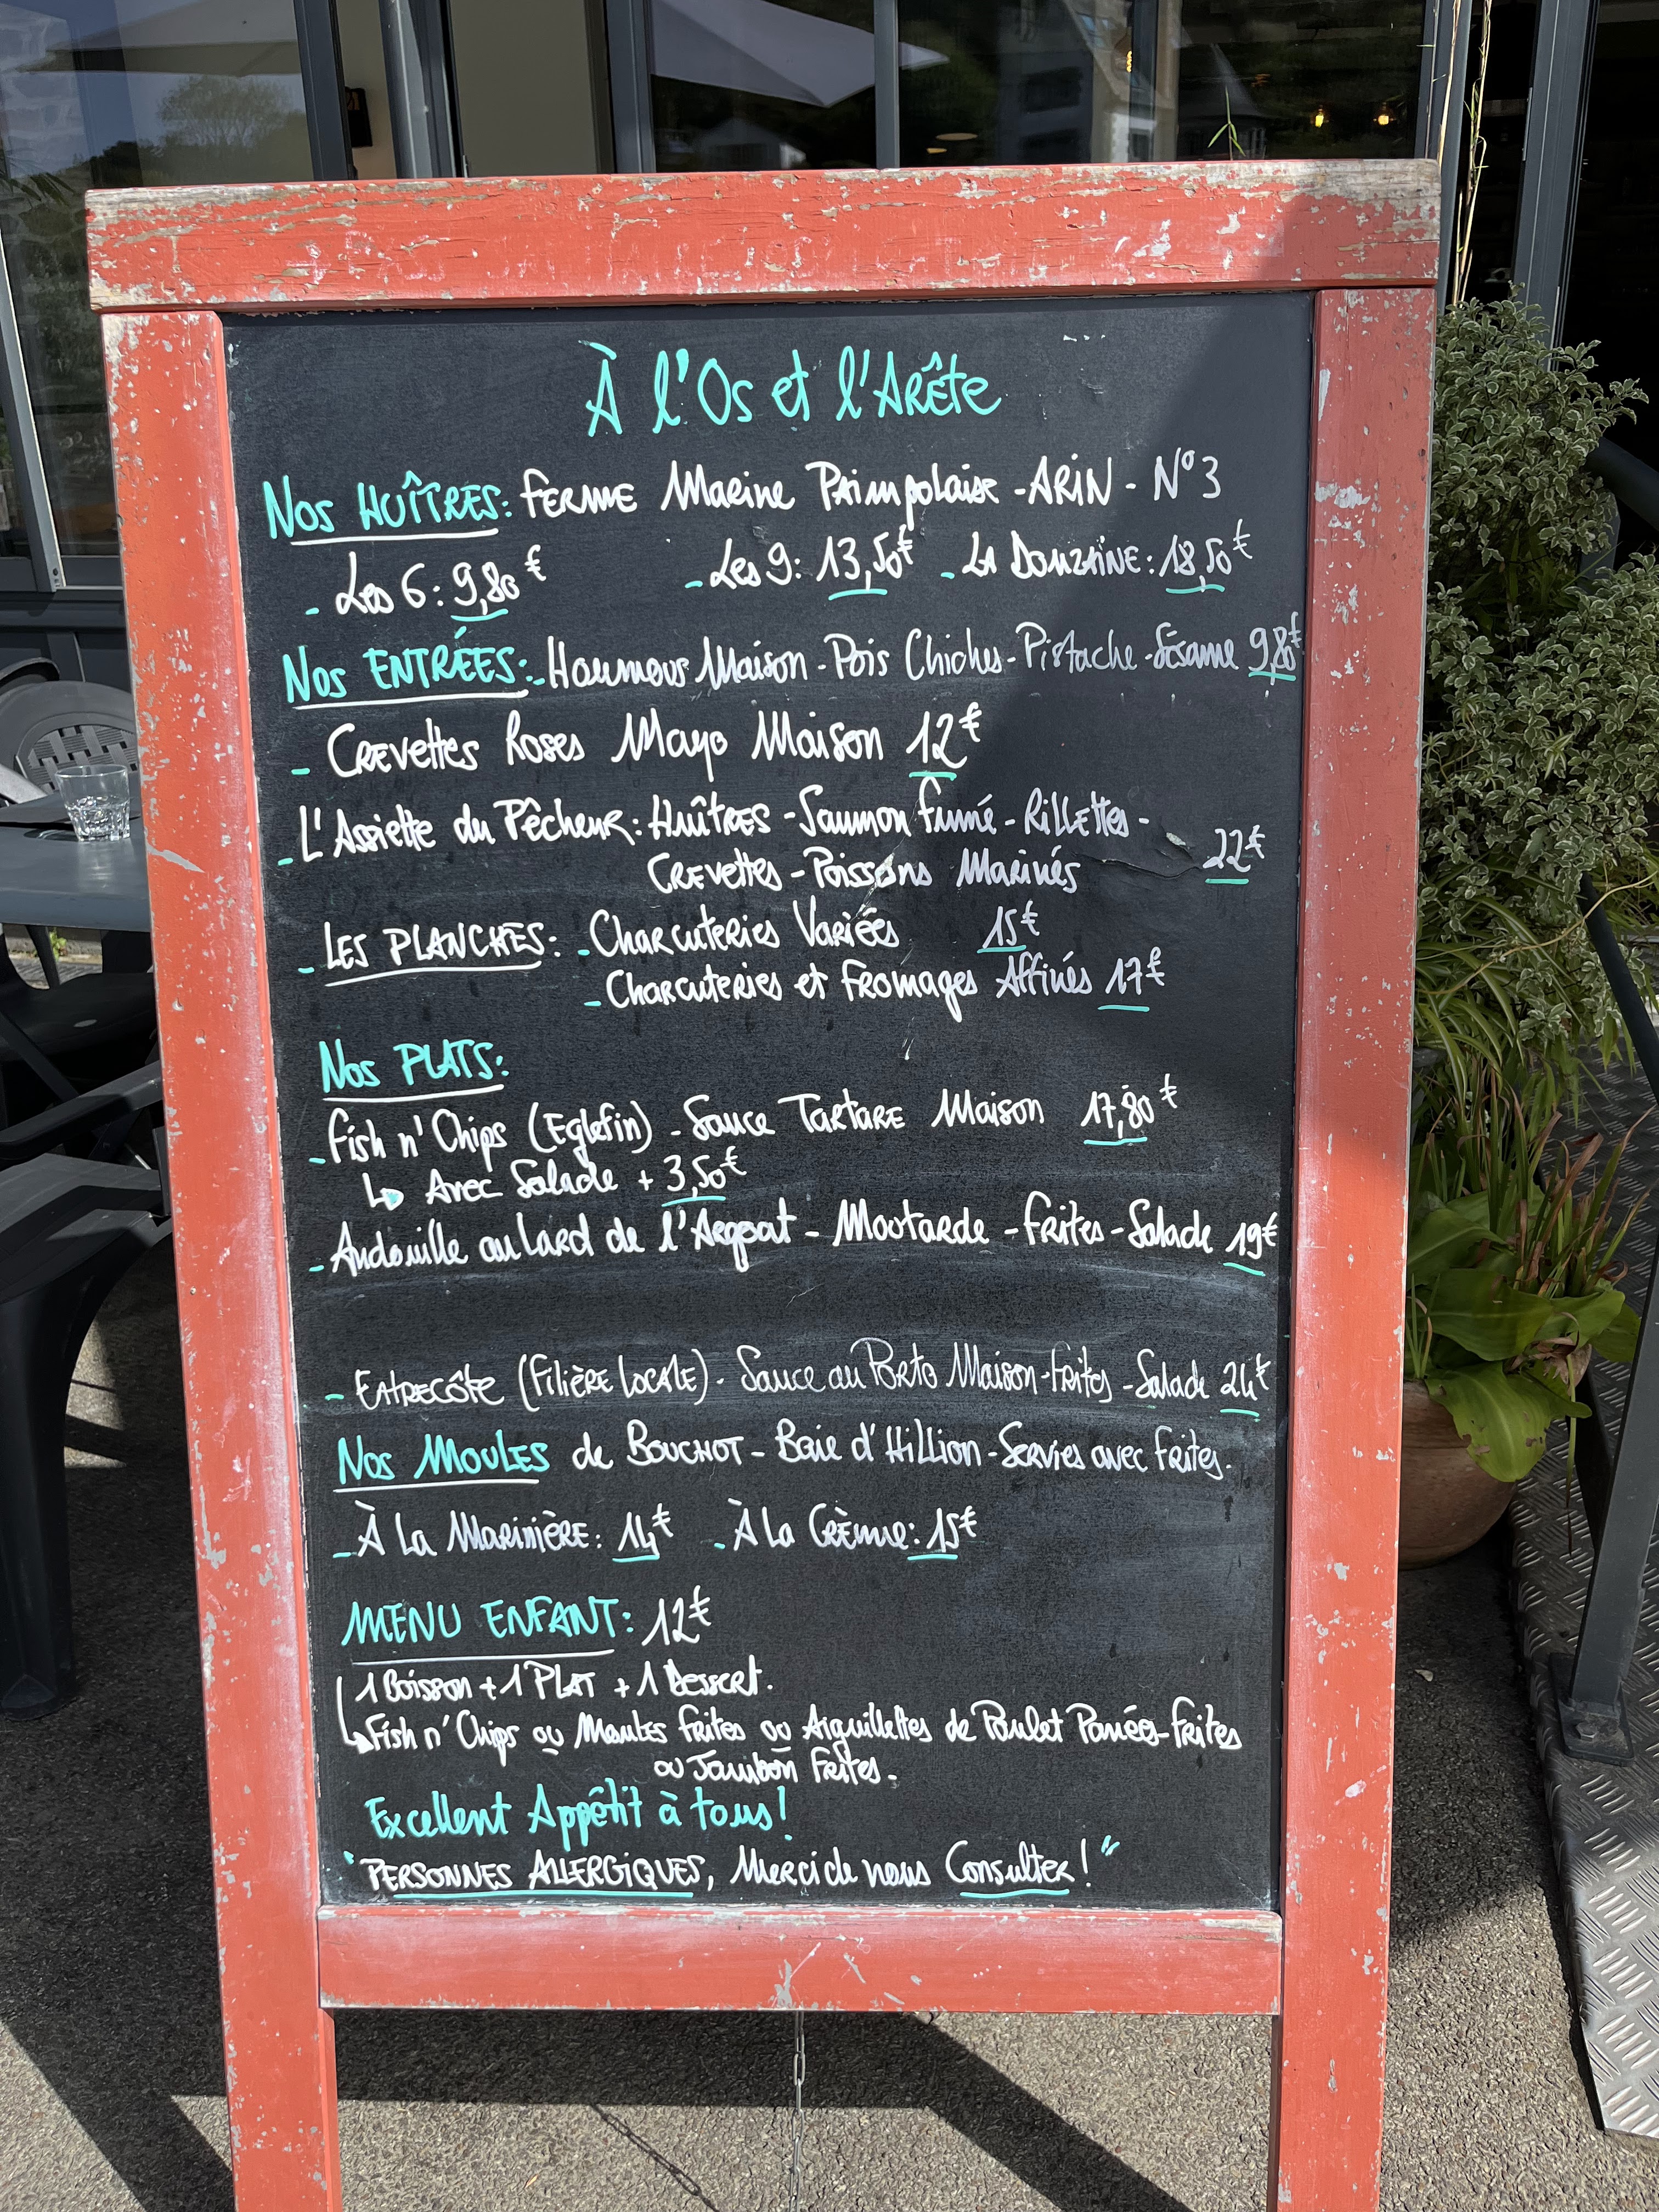 À l'Os et l'Arête
Nos Huîtres: Ferme Marine Paimpolaise - ARIN - N°3
- Les 6: 9,80€ - Les 9: 13,50€ - La Douzaine: 18,50€
Nos Entrées: - Houmous Maison - Pois Chiches - Pistache - Sésame 9,80€
- Crevettes Roses Mayo Maison 12€
- L'Assiette du Pêcheur: Huîtres - Saumon fumé - Rillettes -
Crevettes - Poissons Marinés 22€
- Les Planches: - Charcuteries Variées 15€
- Charcuteries et Fromages Affinés 17€
Nos Plats:
- Fish n' Chips (Eglefin) - Sauce Tartare Maison 17,80€
↳ Avec Salade + 3,50€
- Andouille au Lard de l'Argoat - Moutarde - Frites - Salade 19€
- Entrecôte (Filière Locale) - Sauce au Porto Maison - Frites - Salade 24€
Nos Moules de Bouchot - Baie d'Hillion - Servies avec Frites.
- À La Marinière: 14€ - À La Crème: 15€
MENU ENFANT: 12€
1 Boisson + 1 Plat + 1 Dessert.
↳ Fish n' Chips ou Moules Frites ou Aiguillettes de Poulet Panées - Frites
ou Jambon Frites -
Excellent Appétit à tous!
"Personnes Allergiques, Merci de nous Consulter!"